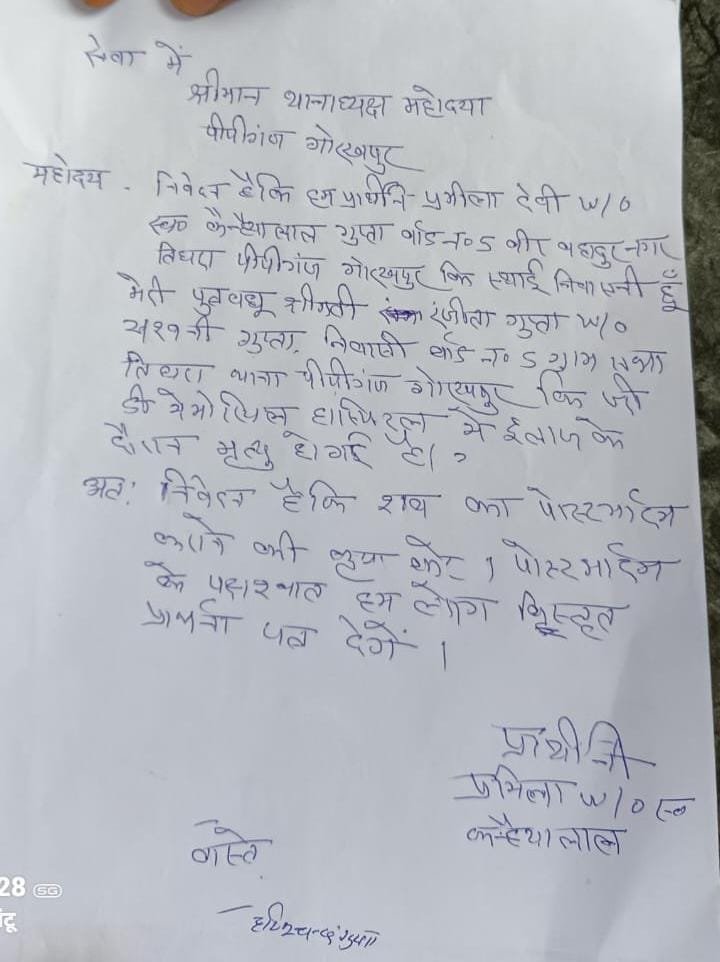 सेवा में
श्रीमान थानाध्यक्ष महोदया
पीपीगंज गोरखपुर
महोदय - निवेदन है कि हम प्रार्थीनि प्रमीला देवी W/O
स्व० कैन्हैयालाल गुप्ता वार्ड न० 5 वीर बहादुर नगर
तिघरा पीपीगंज गोरखपुर कि स्थाई निवासनी हूँ
मेरी पुत्रवधू श्रीमती रंजीता गुप्ता W/O
गुप्ता, निवासी वार्ड न० 5 ग्राम सभा
तिघरा थाना पीपीगंज गोरखपुर कि जी
डी मेमोरियल हास्पिटल मे ईलाज के
दौरान मृत्यु हो गई है।
अतः निवेदन है कि शव का पोस्टमार्टम
कराने की कृपा करें। पोस्टमार्टम
के पश्चात हम लोग विस्तृत
प्रार्थना पत्र देगें।
प्रार्थीनी
प्रमिला W/O स्व
कन्हैया लाल
वास्ते
28 5G
टू